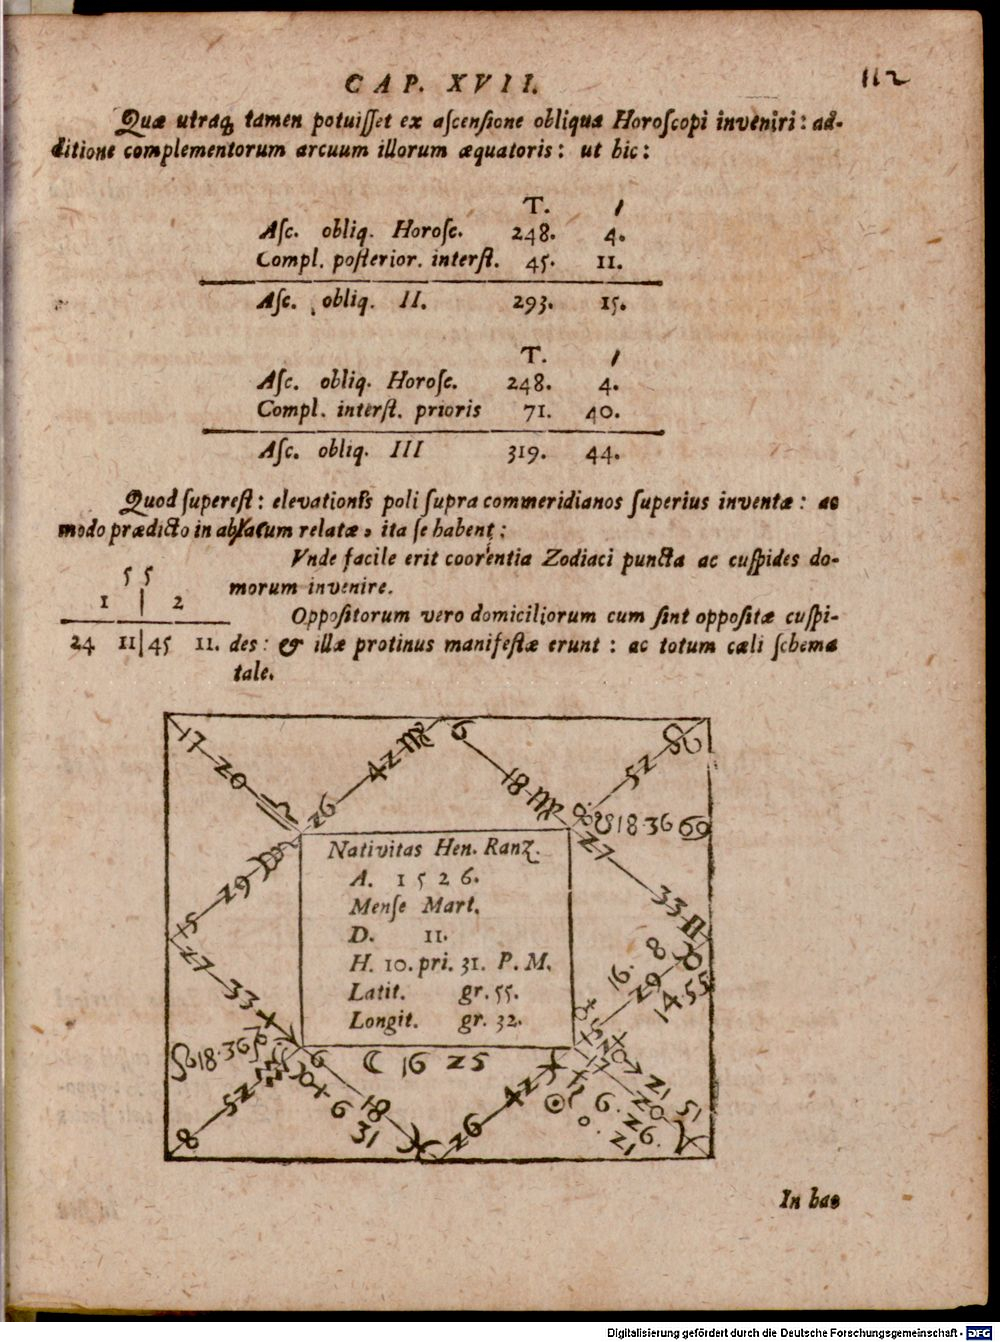 CAP. XVII.
112
Quæ utraq; tamen potuiſſet ex aſcenſione obliqua Horoſcopi inveniri: ad-
ditione complementorum arcuum illorum æquatoris: ut hic:
T. ′
Aſc. obliq. Horoſc. 248. 4.
Compl. poſterior. interſt. 45. 11.
Aſc. obliq. II. 293. 15.
T. ′
Aſc. obliq. Horoſc. 248. 4.
Compl. interſt. prioris 71. 40.
Aſc. obliq. III 319. 44.
Quod ſupereſt: elevationis poli ſupra commeridianos ſuperius inventæ: ac
modo prædicto in relatæ, ita ſe habent:
Vnde facile erit coorientia Zodiaci puncta ac cuſpides do-
morum invenire.
55
1 | 2
24 11 | 45 11.
Oppoſitorum vero domiciliorum cum ſint oppoſitæ cuſpi-
des: & illæ protinus manifeſtæ erunt: ac totum cæli ſchema
tale.
17 20 ♎
26 42 ♍
6 18 ♍
8 52 ♌
☋ 18. 36 ♋
27 33 ♊
15 29 ♏
27 33 ♐
☊ 18. 36 ♑
8 52 ♒
6 18 ♓
☽ 16 25
6 31
26 42 ♓
☉ 0.
Nativitas Hen. Ranz.
A. 1526.
Menſe Mart.
D. 11.
H. 10. pri. 31. P. M.
Latit. gr. 55.
Longit. gr. 32.
In hac
Digitalisierung gefördert durch die Deutsche Forschungsgemeinschaft - DFG